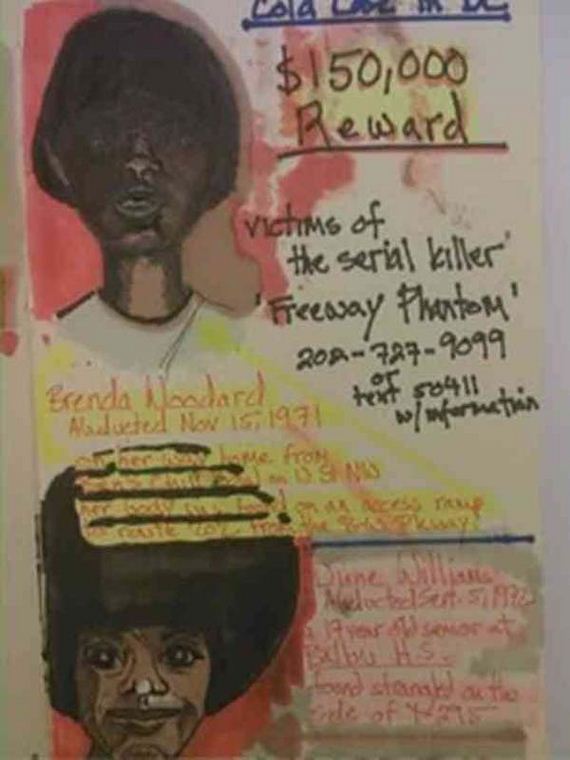 Cold Case in DC
$150,000
Reward
victims of
the serial killer'
'Freeway Phantom'
202-727-9099
or
text 50411
w/information
Brenda Woodard
Abducted Nov 15, 1971
on her way home from
Chili Bowl on U St NW
her body was found on an access ramp
to route 202, from the Pkway.
Diane Williams
Abducted Sept. 5, 1972
a 17 year old senior at
Ballou H.S.
found strangled on the
side of I-295